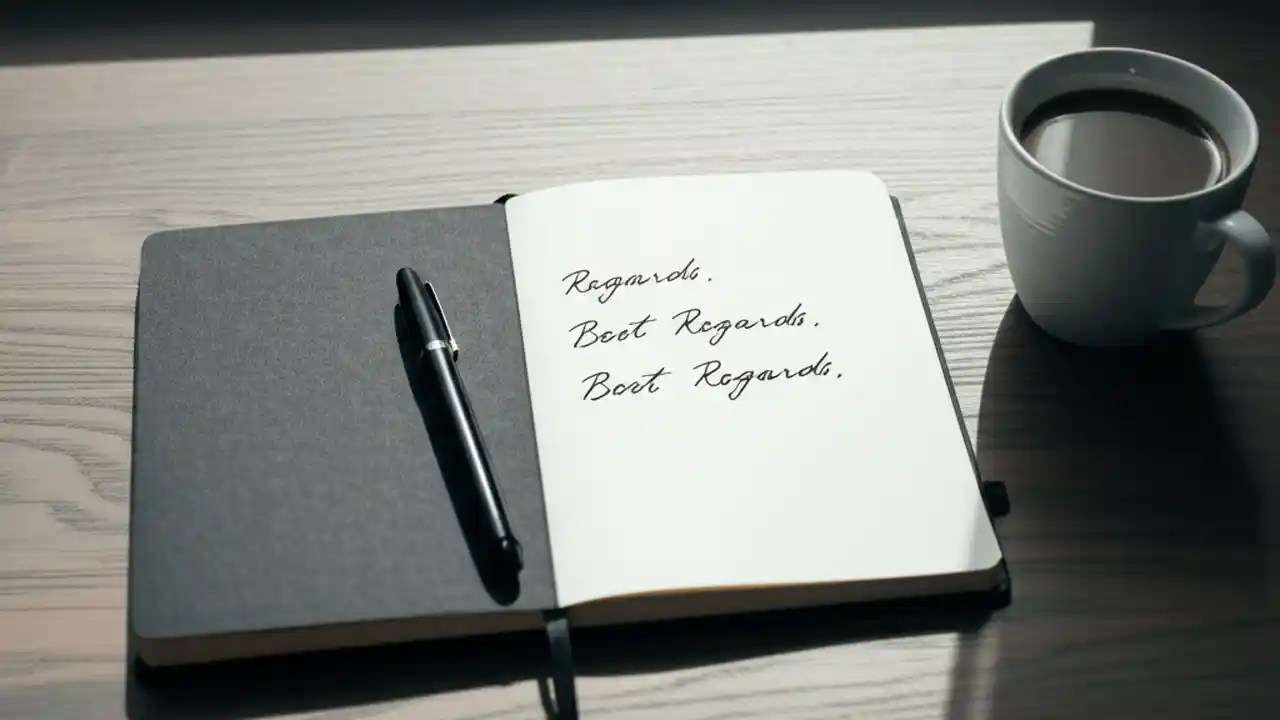 Regards.
Best Regards.
Best Regards.